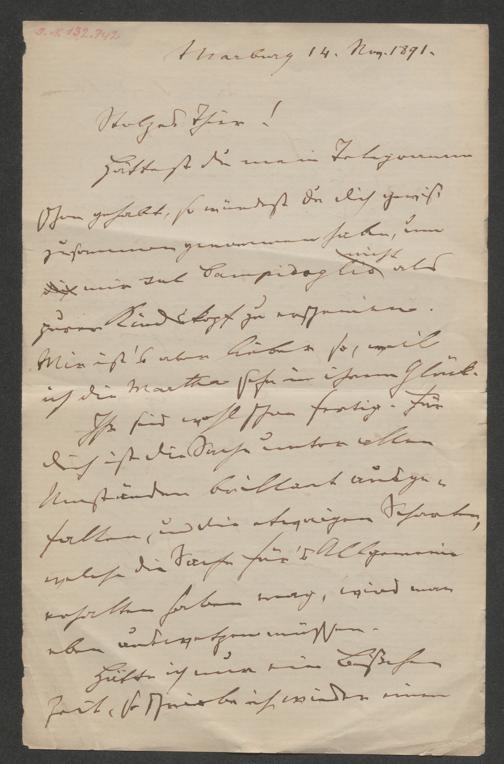 I.N. 132.742
Marburg 14. Nov. 1891.
Stolzes Thier!
Hättest du mein Telegramm
schon gehabt, so würdest du dich gewiß
zusammen genommen haben, um
mir auf Campidoglio nicht als
purer Kindskopf zu erscheinen.
Mir ist's aber lieber so, weil
ich die Martha sehe in ihrem Glück.
Ihr seid wohl schon fertig. Für
dich ist die Sache unter allen
Umständen brillant ausge-
fallen, und die etwaigen Scharten,
welche die Sache für's Allgemeine
erhalten haben mag, wird man
eben auswetzen müssen.
Hätte ich nur ein Bißchen
Zeit, so schriebe ich wieder einen